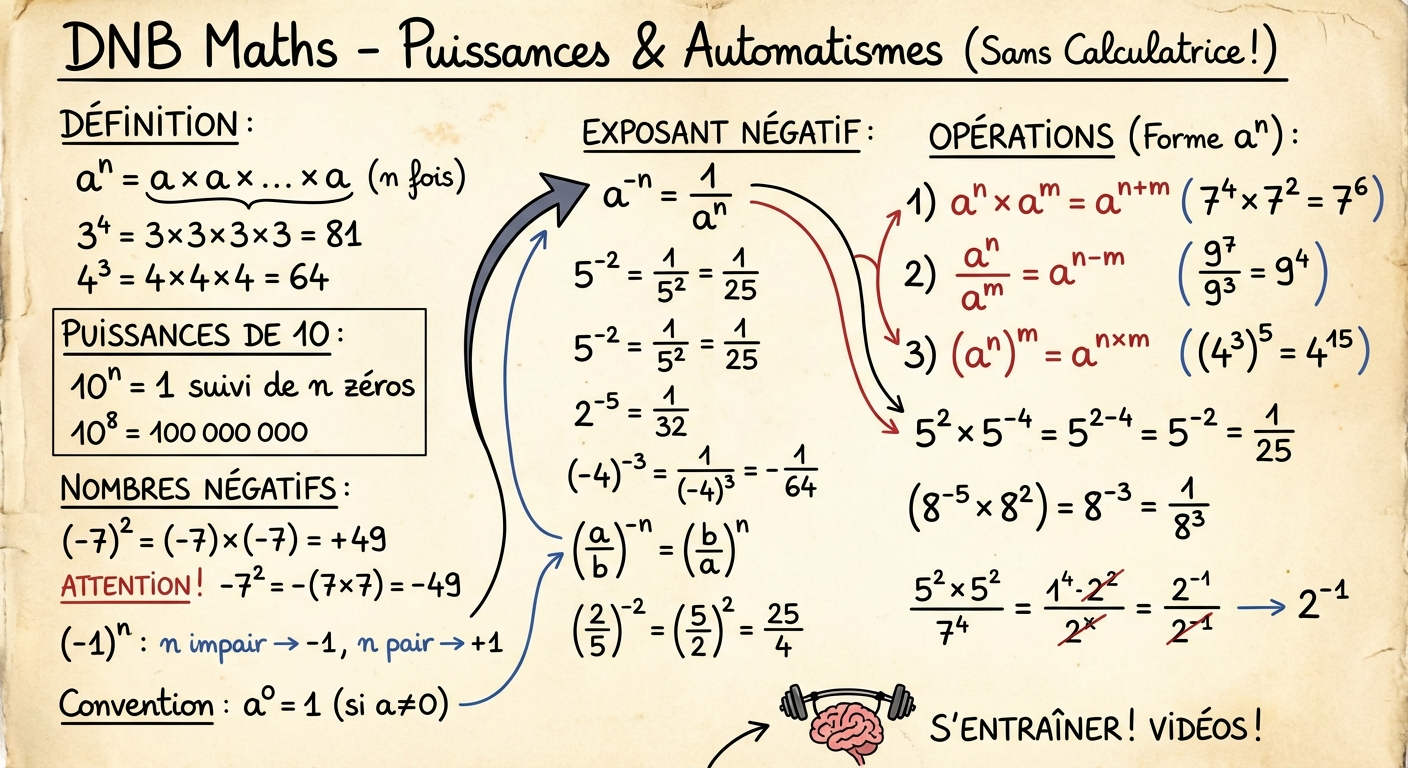 DNB Maths - Puissances & Automatismes (Sans Calculatrice!)
DÉFINITION :
aⁿ = a × a × ... × a (n fois)
3⁴ = 3×3×3×3 = 81
4³ = 4×4×4 = 64
PUISSANCES DE 10 :
10ⁿ = 1 suivi de n zéros
10⁸ = 100 000 000
NOMBRES NÉGATIFS :
(-7)² = (-7)×(-7) = +49
ATTENTION! -7² = -(7×7) = -49
(-1)ⁿ : n impair → -1, n pair → +1
Convention : a⁰ = 1 (si a≠0)
EXPOSANT NÉGATIF :
a⁻ⁿ = 1/aⁿ
5⁻² = 1/5² = 1/25
5⁻² = 1/5² = 1/25
2⁻⁵ = 1/32
(-4)⁻³ = 1/(-4)³ = -1/64
(a/b)⁻ⁿ = (b/a)ⁿ
(2/5)⁻² = (5/2)² = 25/4
OPÉRATIONS (Forme aⁿ) :
1) aⁿ × aᵐ = aⁿ⁺ᵐ (7⁴×7² = 7⁶)
2) aⁿ/aᵐ = aⁿ⁻ᵐ (9⁷/9³ = 9⁴)
3) (aⁿ)ᵐ = aⁿˣᵐ ((4³)⁵ = 4¹⁵)
5² × 5⁻⁴ = 5²⁻⁴ = 5⁻² = 1/25
(8⁻⁵ × 8²) = 8⁻³ = 1/8³
5²×5²/7⁴ = 1⁴·2²/2ˣ = 2⁻¹/2⁻¹ → 2⁻¹
S'ENTRAÎNER! VIDÉOS!